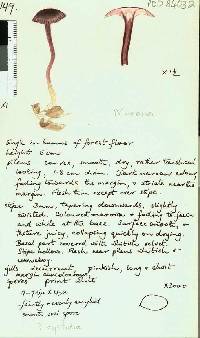 849.
PDD 84032
x 1½
Single in humus of forest floor
height 6 cm
pileus convex, smooth, dry, rather translucent
looking, 1.8 cm diam. Dark maroon colour
fading towards the margin, & striate near the
margin. Flesh thin except over stipe.
stipe 3mm, tapering downwards, slightly
twisted. Coloured maroon & fading to
and white at the base. Surface smooth, &
texture juicy, collapsing quickly on drying.
Basal part covered with whitish velvet.
Stipe hollow. Flesh near pileus whitish &
gills decurrent, pinkish, long & short
margin
spores print white
x 2000
smooth oval spore
? cystidia